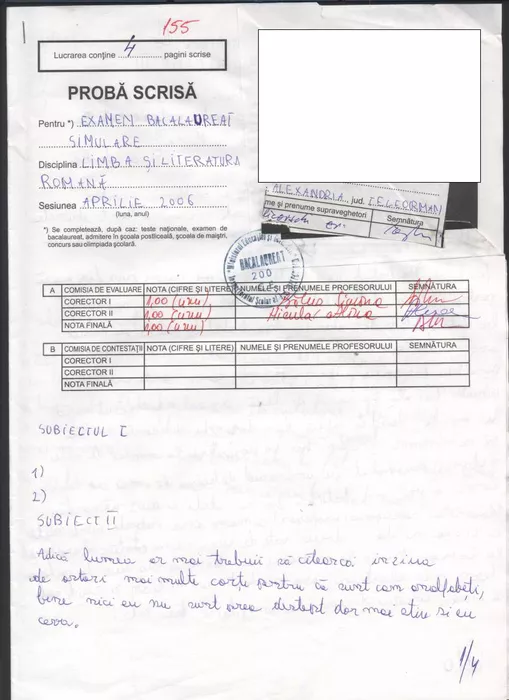 155
Lucrarea conține 4 pagini scrise
PROBĂ SCRISĂ
Pentru *) EXAMEN BACALAUREAT
SIMULARE
Disciplina LIMBA ȘI LITERATURA
ROMANĂ
Sesiunea APRILIE 2006
(luna, anul)
*) Se completează, după caz: teste naționale, examen de
bacalaureat, admitere în școala postliceală, școala de maiștri,
concurs sau olimpiada școlară.
ALEXANDRIA, jud. TELEORMAN
me și prenume supraveghetori Semnătura
BACALAUREAT
200
A COMISIA DE EVALUARE NOTA (CIFRE ȘI LITERE) NUMELE ȘI PRENUMELE PROFESORULUI SEMNĂTURA
CORECTOR I 1,00 (unu)
CORECTOR II 1,00 (unu)
NOTA FINALĂ 1,00 (unu)
B COMISIA DE CONTESTAȚII NOTA (CIFRE ȘI LITERE) NUMELE ȘI PRENUMELE PROFESORULUI SEMNĂTURA
CORECTOR I
CORECTOR II
NOTA FINALĂ
SUBIECTUL I
1)
2)
SUBIECT II
Adică lumea ar mai trebuii să citească in ziua
de astazi mai multe carți pentru că sunt cam analfabeți,
bine nici eu nu sunt prea distept dar mai știu si eu
ceva.
1/4